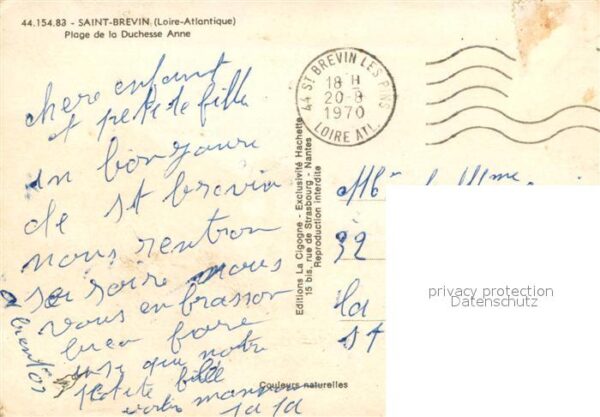 44.154.83 - SAINT-BREVIN (Loire-Atlantique)
Plage de la Duchesse Anne
chere enfant
et petite fille
un bonjoure
de st brevin
nous rentron
se soire nous
vous enbrasson
bien fore
insi que notre
petite fille
votre maman
44 ST BREVIN LES PINS
18 H
20-8
1970
LOIRE ATL.
Editions La Cigogne - Exclusivité Hachette
15 bis, rue de Strasbourg - Nantes
Reproduction interdite
Mr et Mme
32
la
st
privacy protection
Datenschutz
Couleurs naturelles